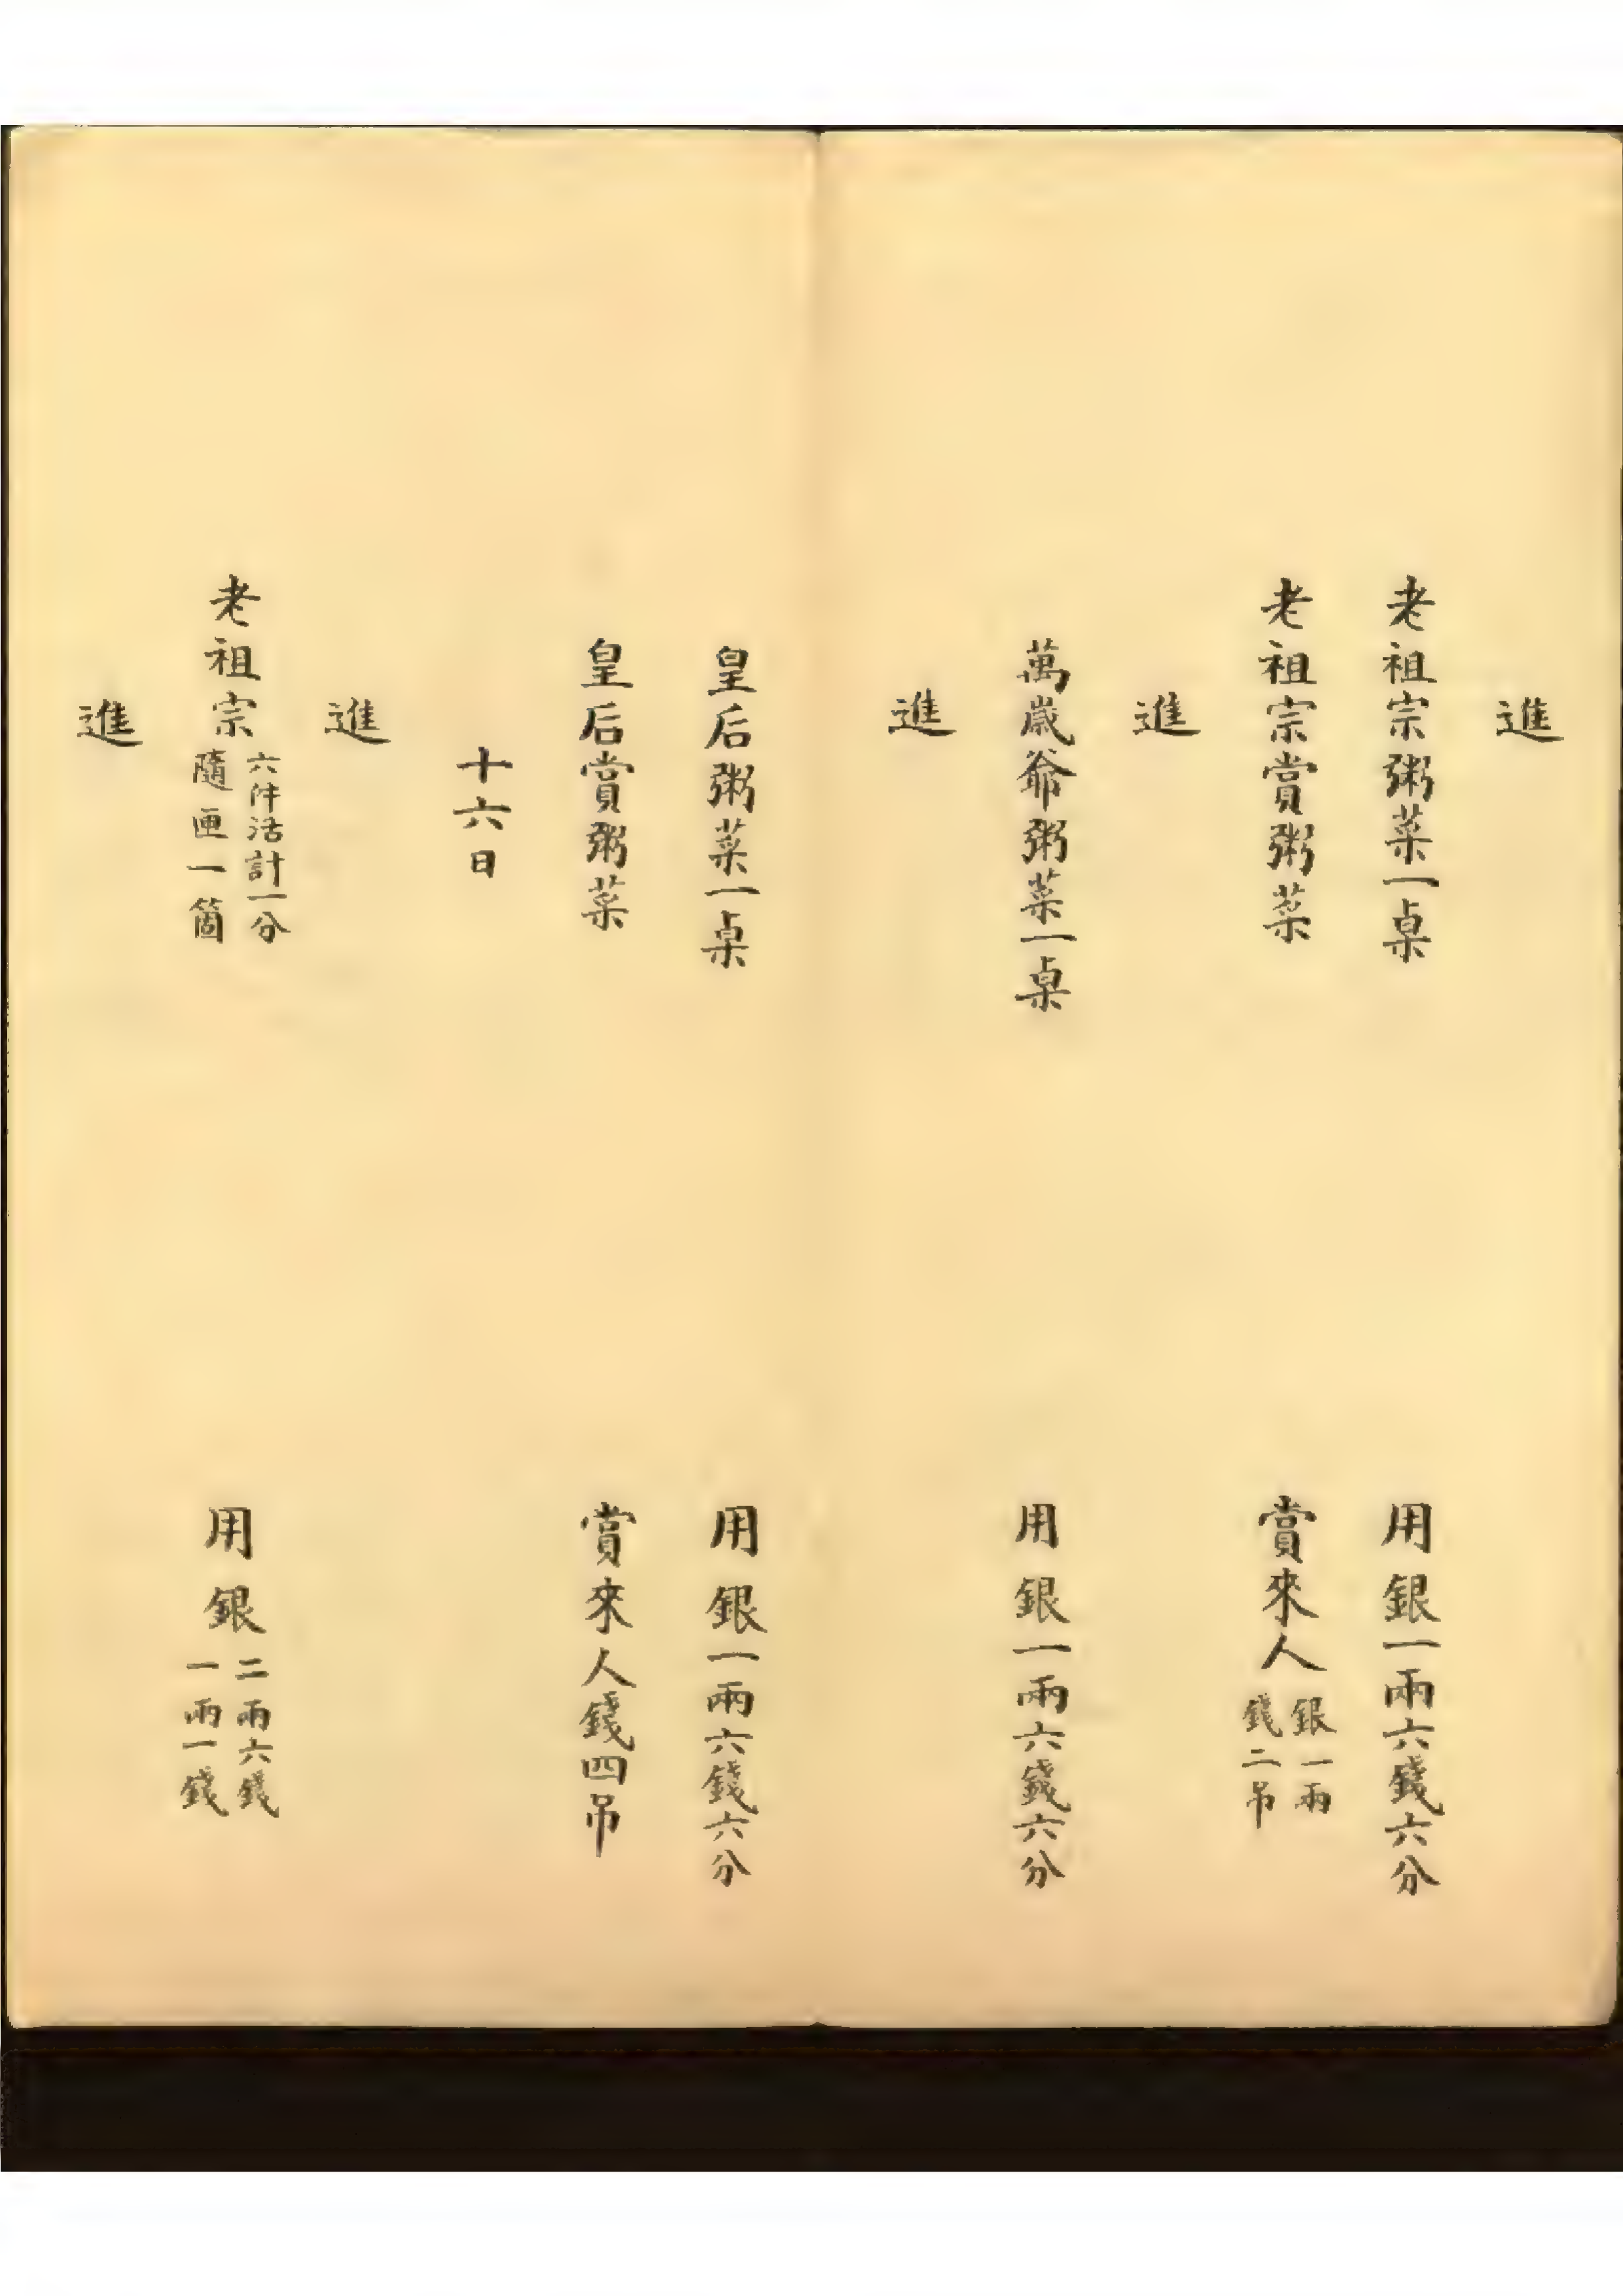 進
老祖宗粥菜一桌 用銀一兩六錢六分
老祖宗賞粥菜 賞來人銀一兩
錢二吊
進
萬歲爺粥菜一桌 用銀一兩六錢六分
進
皇后粥菜一桌 用銀一兩六錢六分
皇后賞粥菜 賞來人錢四吊
十六日
進
老祖宗六件活計一分 用銀二兩六錢
隨匣一箇 一兩一錢
進